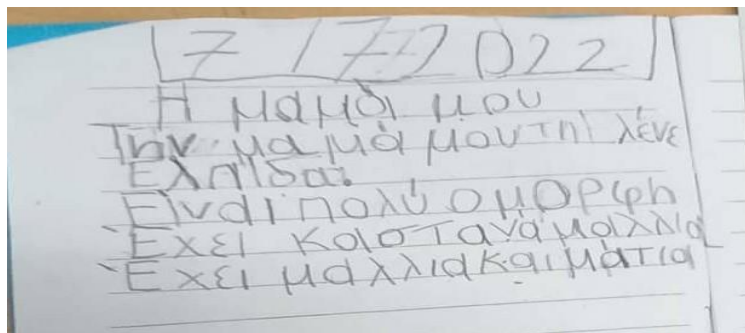 7/7/2022
Η μαμά μου
Την μαμά μου τη λένε
Ελπίδα.
Είναι πολύ όμορφη
Έχει καστανά μαλλιά
Έχει μαλλιά και μάτια